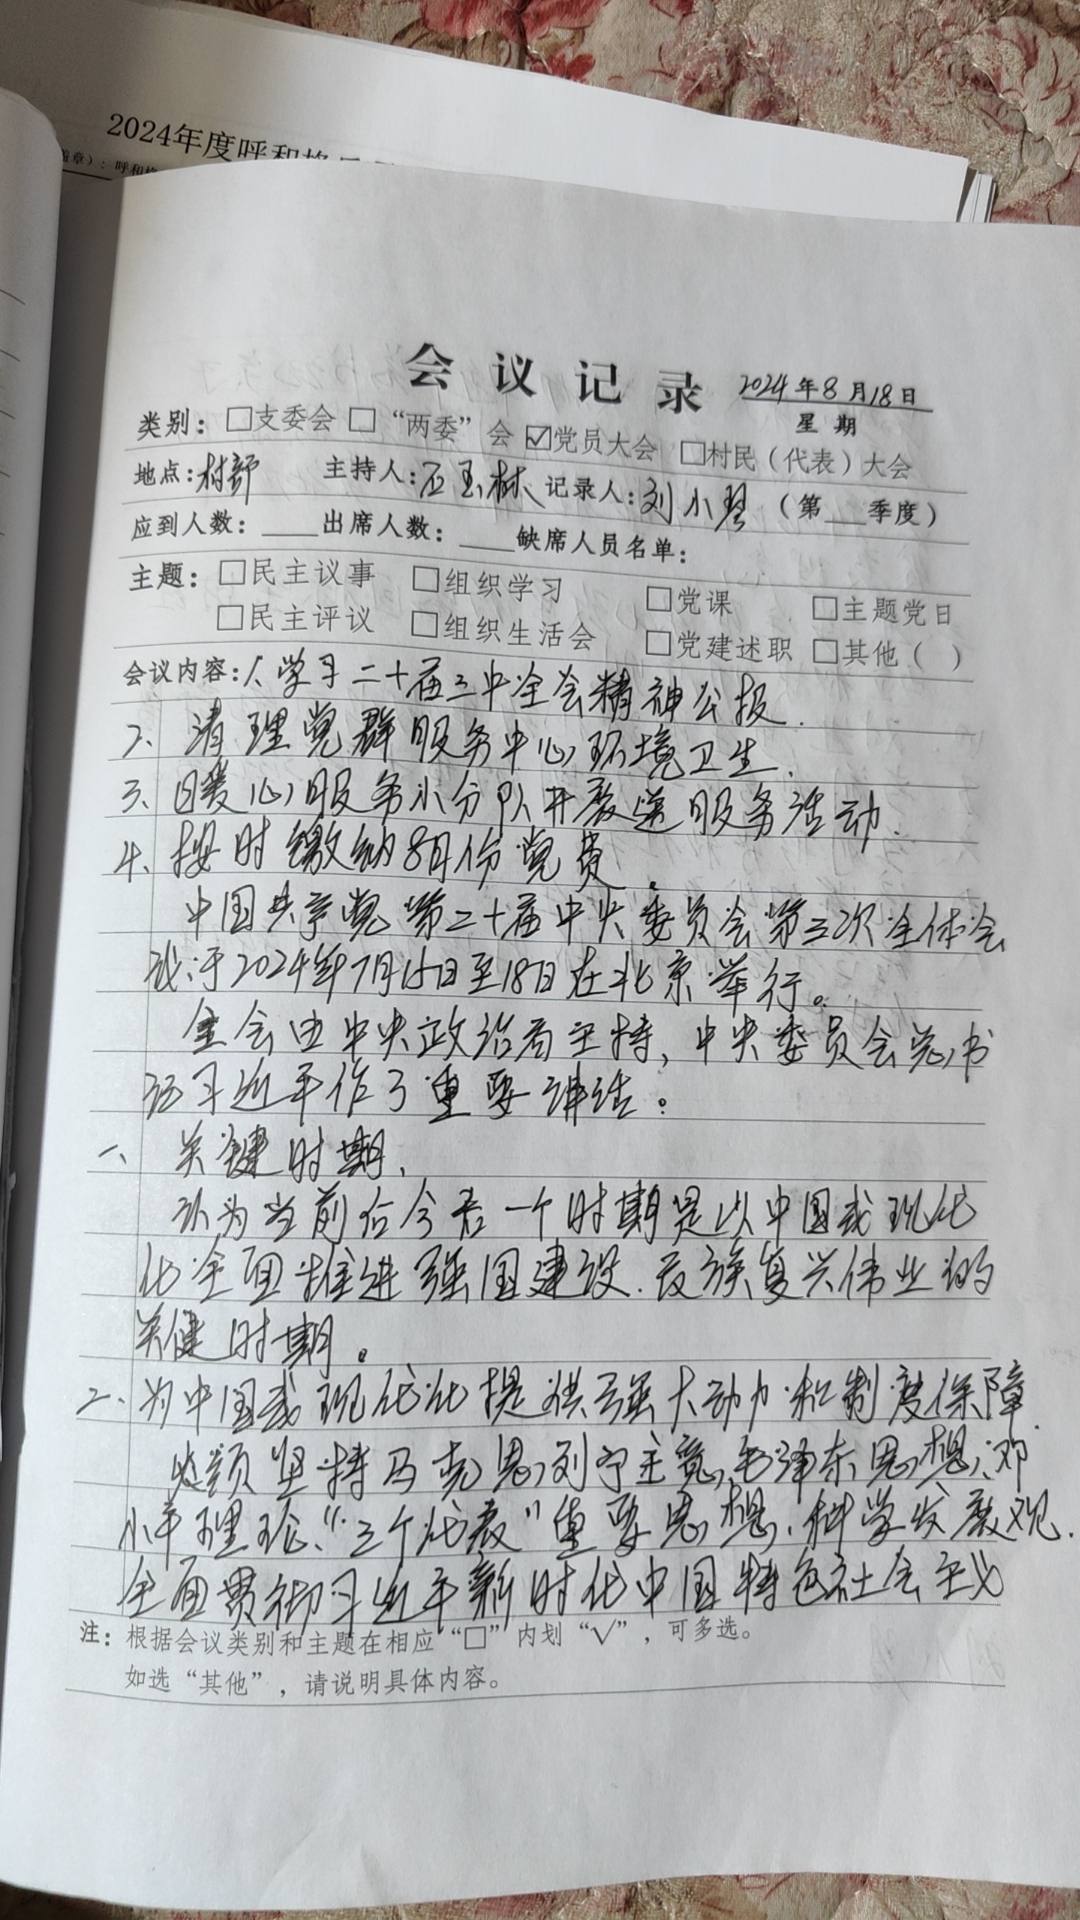 2024年度呼和
盖章）：呼和
会 议 记 录 2024年8月18日
星 期
类别：□支委会 □“两委”会 ☑党员大会 □村民（代表）大会
地点：村部 主持人：石玉林 记录人：刘小琴 （第 季度）
应到人数： 出席人数： 缺席人员名单：
主题：□民主议事 □组织学习 □党课 □主题党日
□民主评议 □组织生活会 □党建述职 □其他（ ）
会议内容：1、学习二十届三中全会精神公报.
2、清理党群服务中心环境卫生.
3、暖心服务小分队开展送服务活动.
4、按时缴纳8月份党费。
中国共产党第二十届中央委员会第三次全体会
议于2024年7月15日至18日在北京举行。
全会由中央政治局主持，中央委员会总书
记习近平作了重要讲话。
一、关键时期、
认为当前和今后一个时期是以中国式现代
化全面推进强国建设.民族复兴伟业的
关键时期。
二、为中国式现代化提供强大动力和制度保障.
必须坚持马克思列宁主义,毛泽东思想、邓
小平理论、“三个代表”重要思想、科学发展观.
全面贯彻习近平新时代中国特色社会主义
注：根据会议类别和主题在相应“□”内划“√”，可多选。
如选“其他”，请说明具体内容。